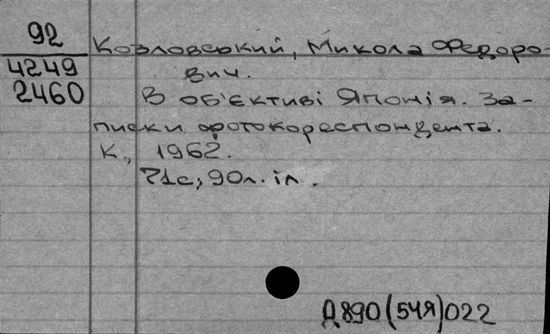 92
4249
2460
Козловський, Микола Федоро-
вич.
В об'єктиві Японія. За-
писки фотокореспондента.
К., 1962.
71с; 90л. іл.
Д890(5ЧЯ)022